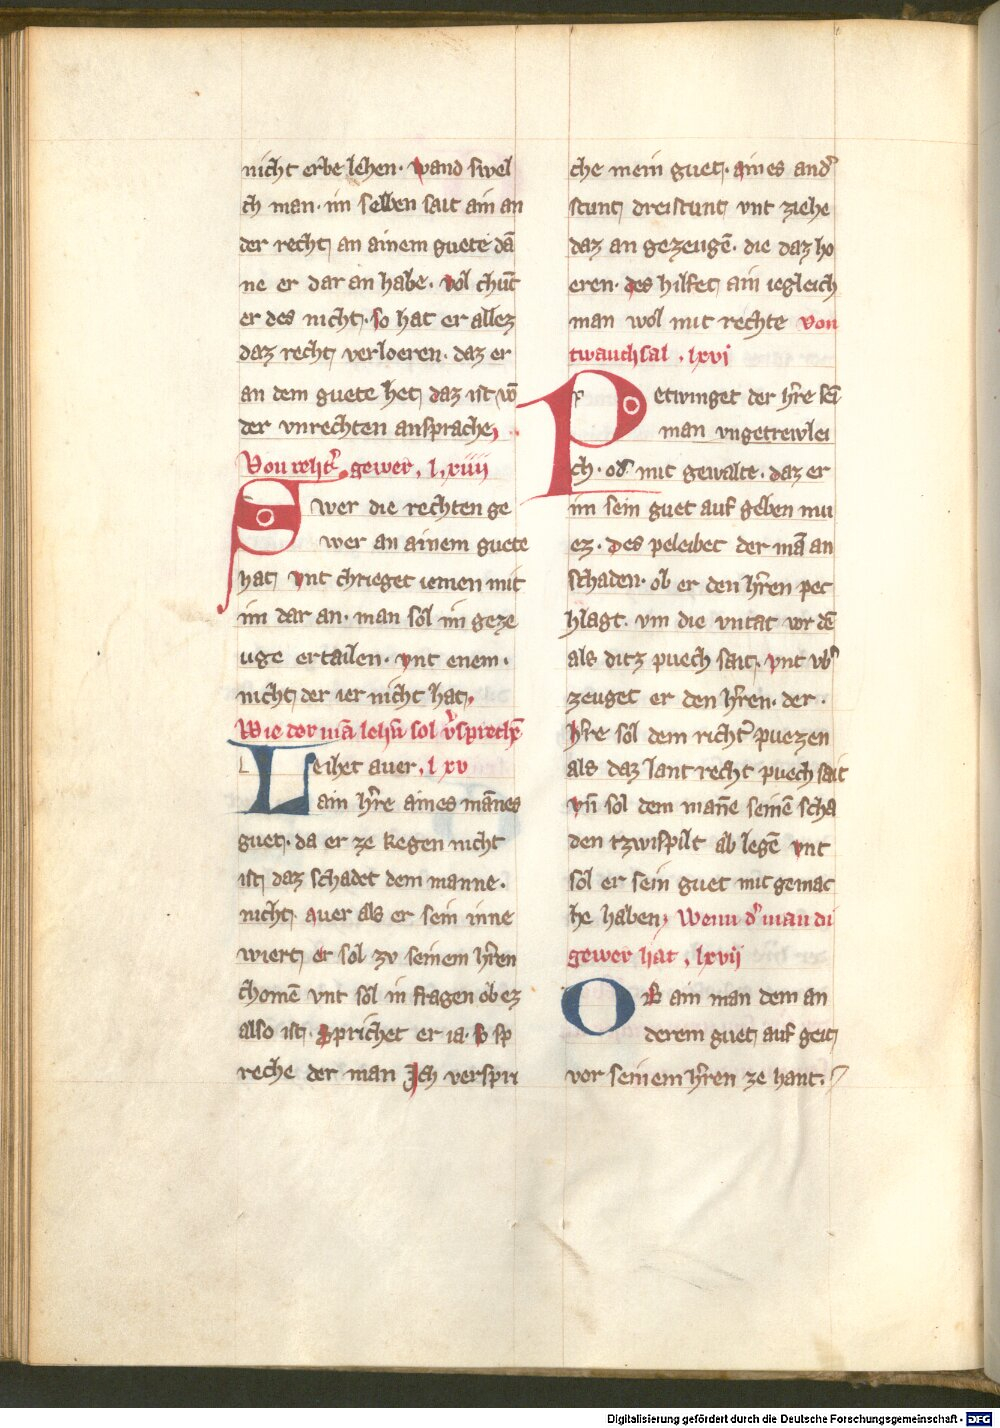 nicht erbe lehen. wand swel
ch man. im selben sait ain an
der recht an ainem guete dā
ne er dar an habe. vol chūt
er des nicht. so hat er allez
daz recht verloeren. daz er
an dem guete het, daz ist vō
der vnrechten ansprache,
Von gewer. lxiiii
Swer die rechten ge
wer an ainem guete
hat, vnt chrieget iemen mit
im dar an. man sol im geze
uge ertailen. vnt enem.
nicht der ier nicht hat,
Wie der mā lehn̄ sol
Leihet auer, lxv
ain hr̄re aines mānes
guet. da er ze kegen nicht
ist, daz schadet dem manne.
nicht. auer als er sein inne
wiert, er sol zv seinem hr̄ren
chomē vnt sol in fragen ob ez
also ist. sprichet er ia. so sp
reche der man Ich verspri
che mein guet. aines and̾
stunt, dreistunt vnt ziehe
daz an gezeugē. die daz ho
eren. des hilfet ain iegleich
man wol mit rechte Von
twanchsal. lxvi
Petwinget der hr̄re sei
man vngetrewlei
ch. od̾ mit gewalte. daz er
im sein guet auf geben mu
ez. des peleibet der mā an
schaden. ob er den hr̄ren pec
hlagt. vm die vntat vor dē
als ditz puech sait. vnt vb̾
zeuget er den hr̄ren. der.
hr̄re sol dem richt̾ puezen
als daz lant recht puech sait
vn̄ sol dem man̄e seinē scha
den tzwispilt ab legē vnt
sol er sein guet mit gemac
he haben, Wenn d̾ man di
gewer hat, lxvii
Ob ain man dem an
derem guet auf geit,
vor seinem hr̄ren ze hant.
Digitalisierung gefördert durch die Deutsche Forschungsgemeinschaft - DFG